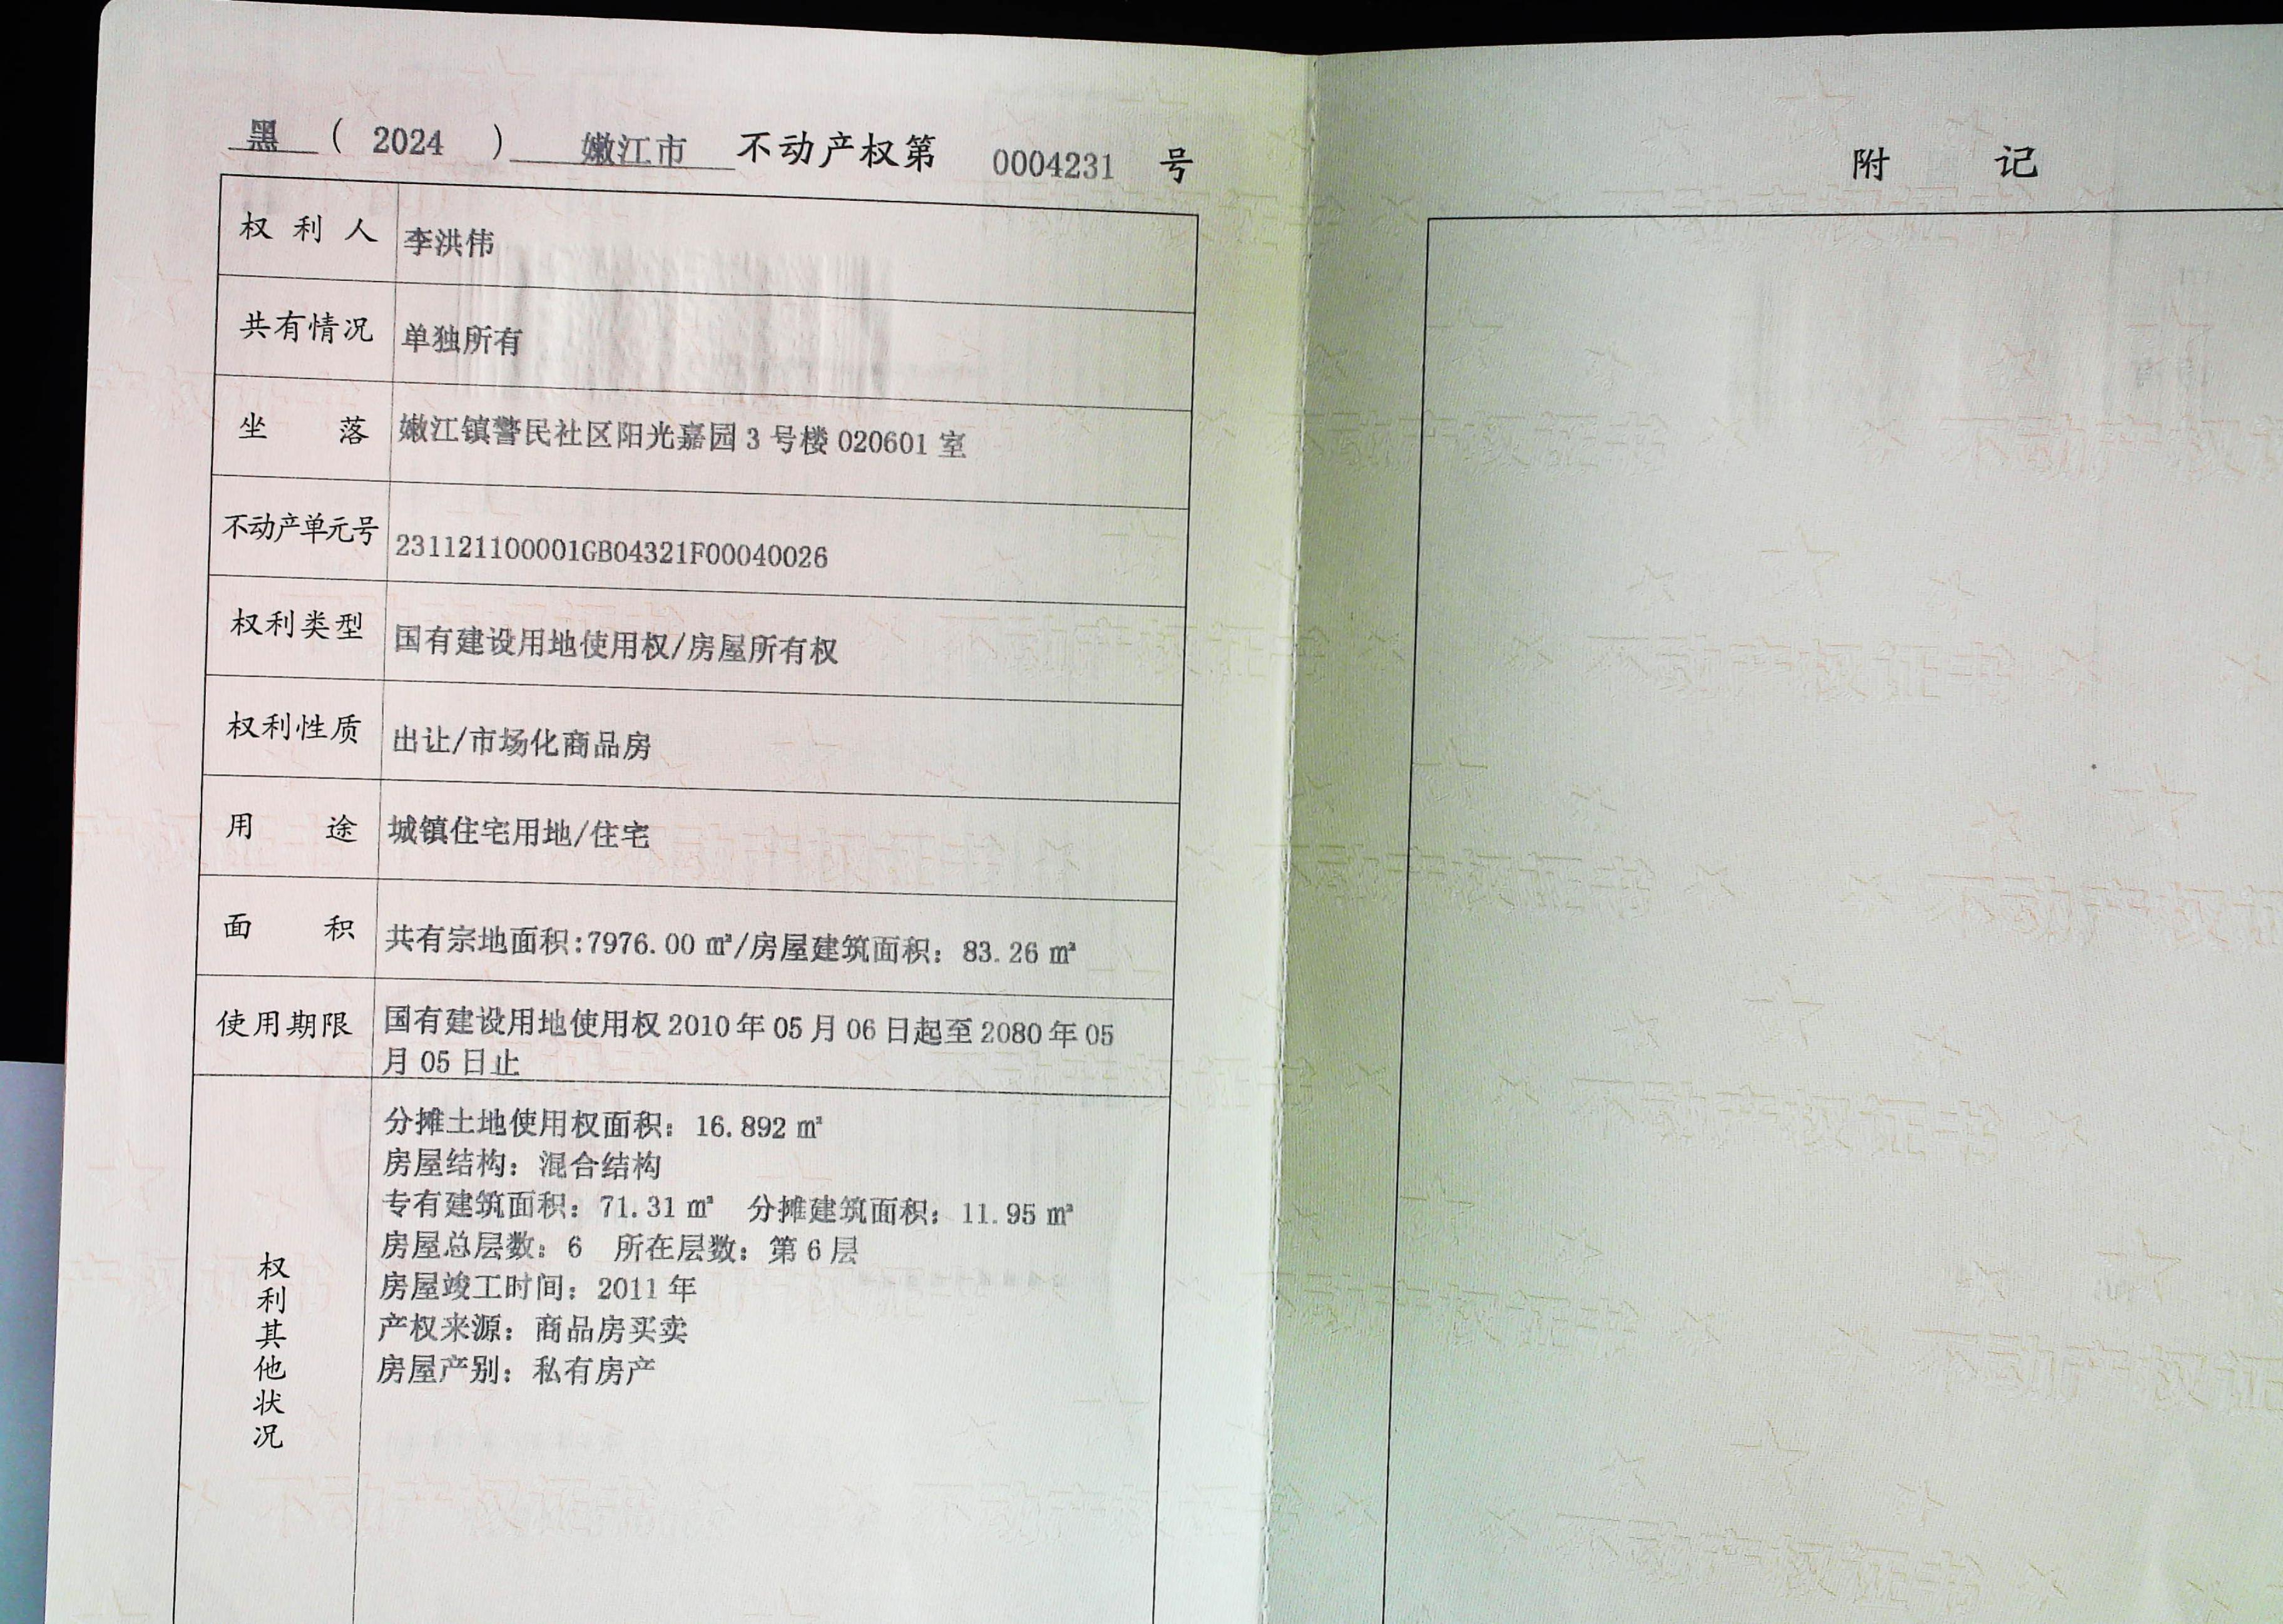 黑 ( 2024 ) 嫩江市 不动产权第 0004231 号
权利人 李洪伟
共有情况 单独所有
坐落 嫩江镇警民社区阳光嘉园 3 号楼 020601 室
不动产单元号 231121100001GB04321F00040026
权利类型 国有建设用地使用权/房屋所有权
权利性质 出让/市场化商品房
用途 城镇住宅用地/住宅
面积 共有宗地面积:7976.00 ㎡/房屋建筑面积：83.26 ㎡
使用期限 国有建设用地使用权 2010 年 05 月 06 日起至 2080 年 05
月 05 日止
权利其他状况
分摊土地使用权面积：16.892 ㎡
房屋结构：混合结构
专有建筑面积：71.31 ㎡ 分摊建筑面积：11.95 ㎡
房屋总层数：6 所在层数：第 6 层
房屋竣工时间：2011 年
产权来源：商品房买卖
房屋产别：私有房产
附记